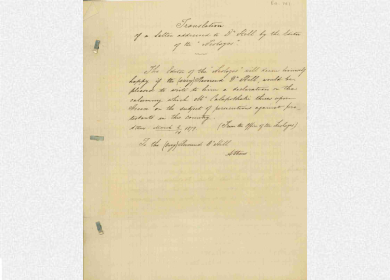 Translation
of a letter addressed to Dr Hill by the Editor
of the "Neologos"
The Editor of the "Neologos" will deem himself
happy if the (very) Reverend Dr Hill would be
pleased to write to him a declaration in the
calumny which Mr Kalopothakis throws upon
on the subject of persecutions against pro-
testants in this country.
Athens March 1877 (From the Office of the Neologos)
To the (very) Reverend Dr Hill
Athens